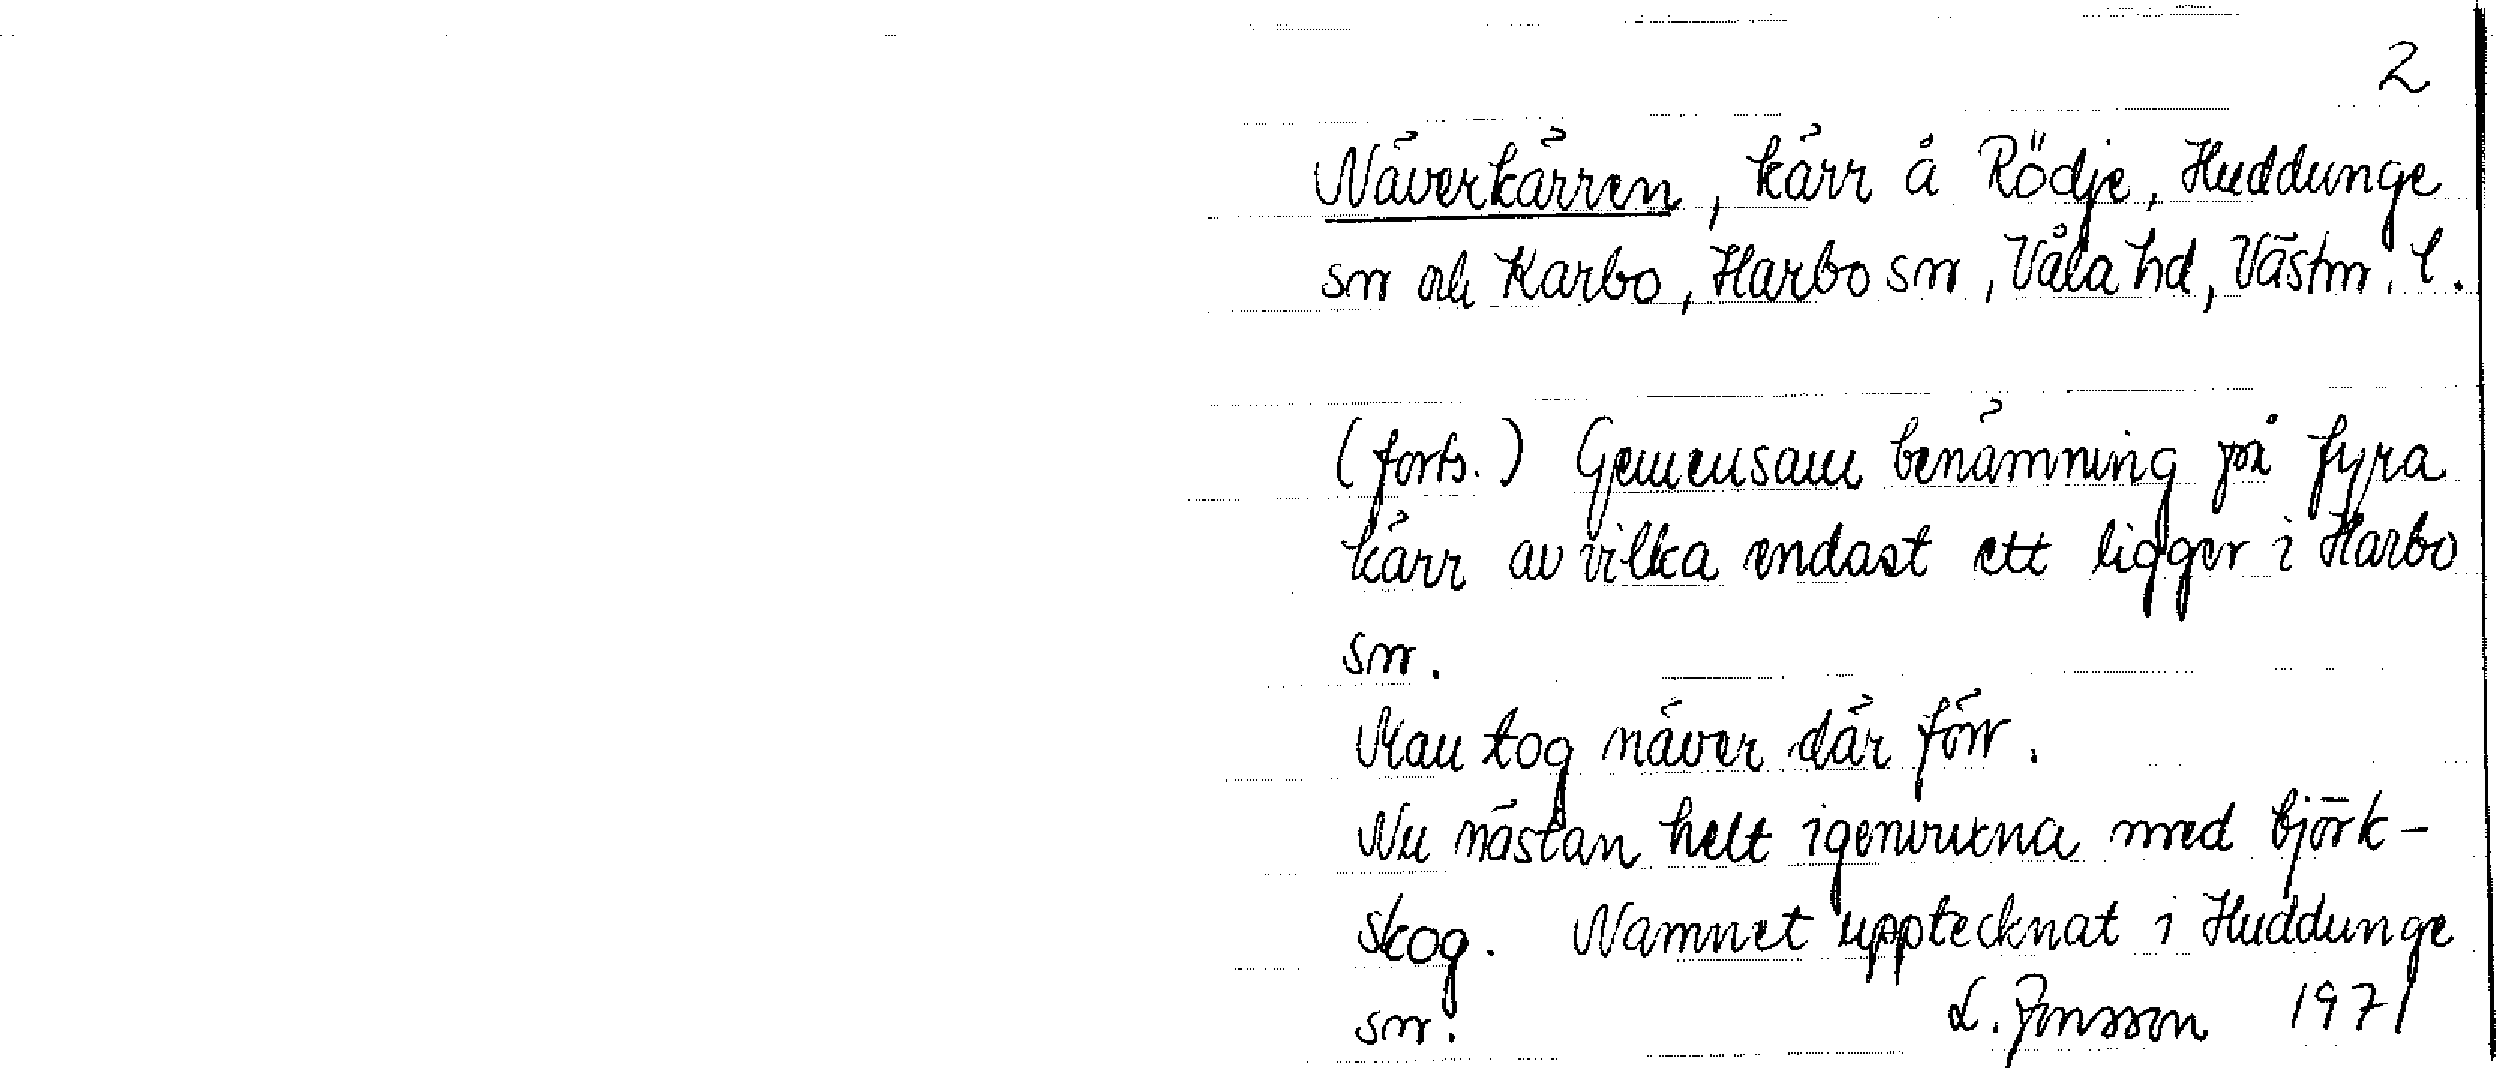 2
Näverkärren, kärr å Rödje, Huddunge
sn och Karbo, Harbo sn, Våla hd, Västm. l.
(forts.) Gemensam benämning på fyra
kärr av vilka endast ett ligger i Harbo
sn.
Man tog näver där förr.
Nu nästan helt igenvuxna med björk-
skog. Namnet upptecknat i Huddunge
sn. L. Jonsson 1971